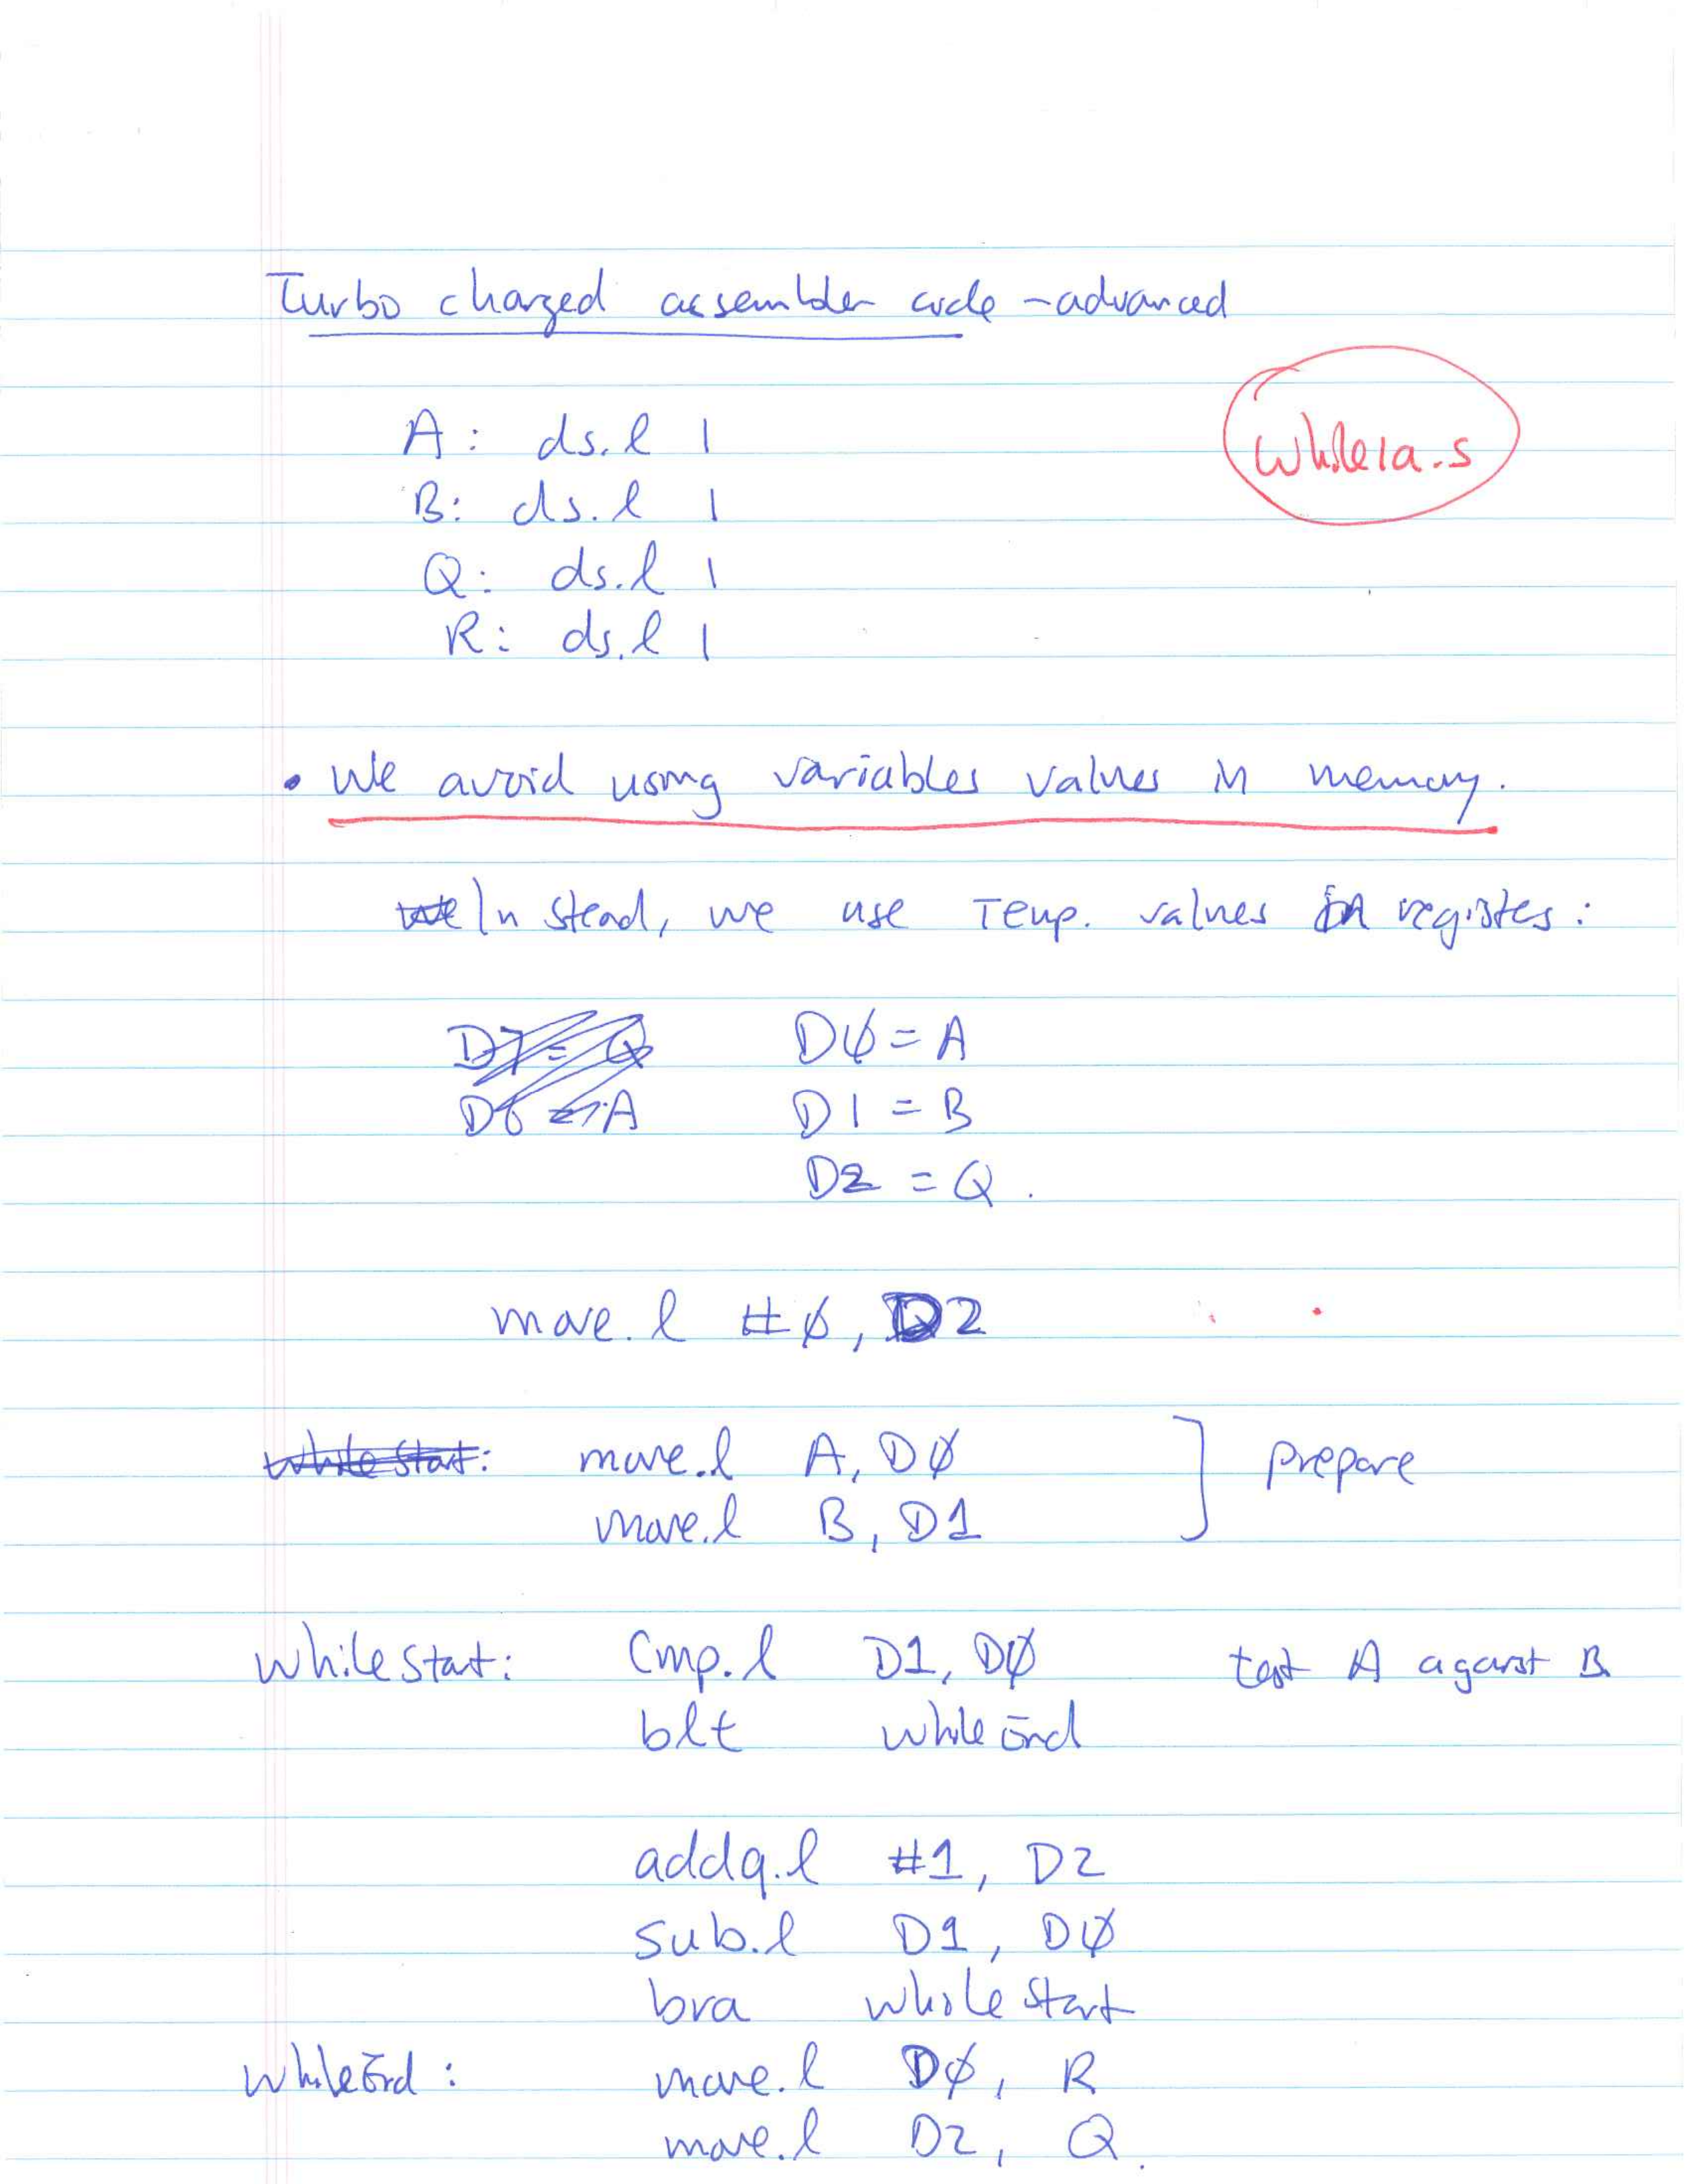 Turbo charged assembler code - advanced
A: ds.l 1
while1a.s
B: ds.l 1
Q: ds.l 1
R: ds.l 1
• We avoid using variables values in memory.
In stead, we use Temp. values in registes:
D7 = Q D0 = A
D6 = A D1 = B
D2 = Q.
move.l #0, D2
While Start: move.l A, D0 ] prepare
move.l B, D1
While Start: Cmp.l D1, D0 test A against B
blt while End
addq.l #1, D2
sub.l D1, D0
bra while Start
While End: move.l D0, R
move.l D2, Q.